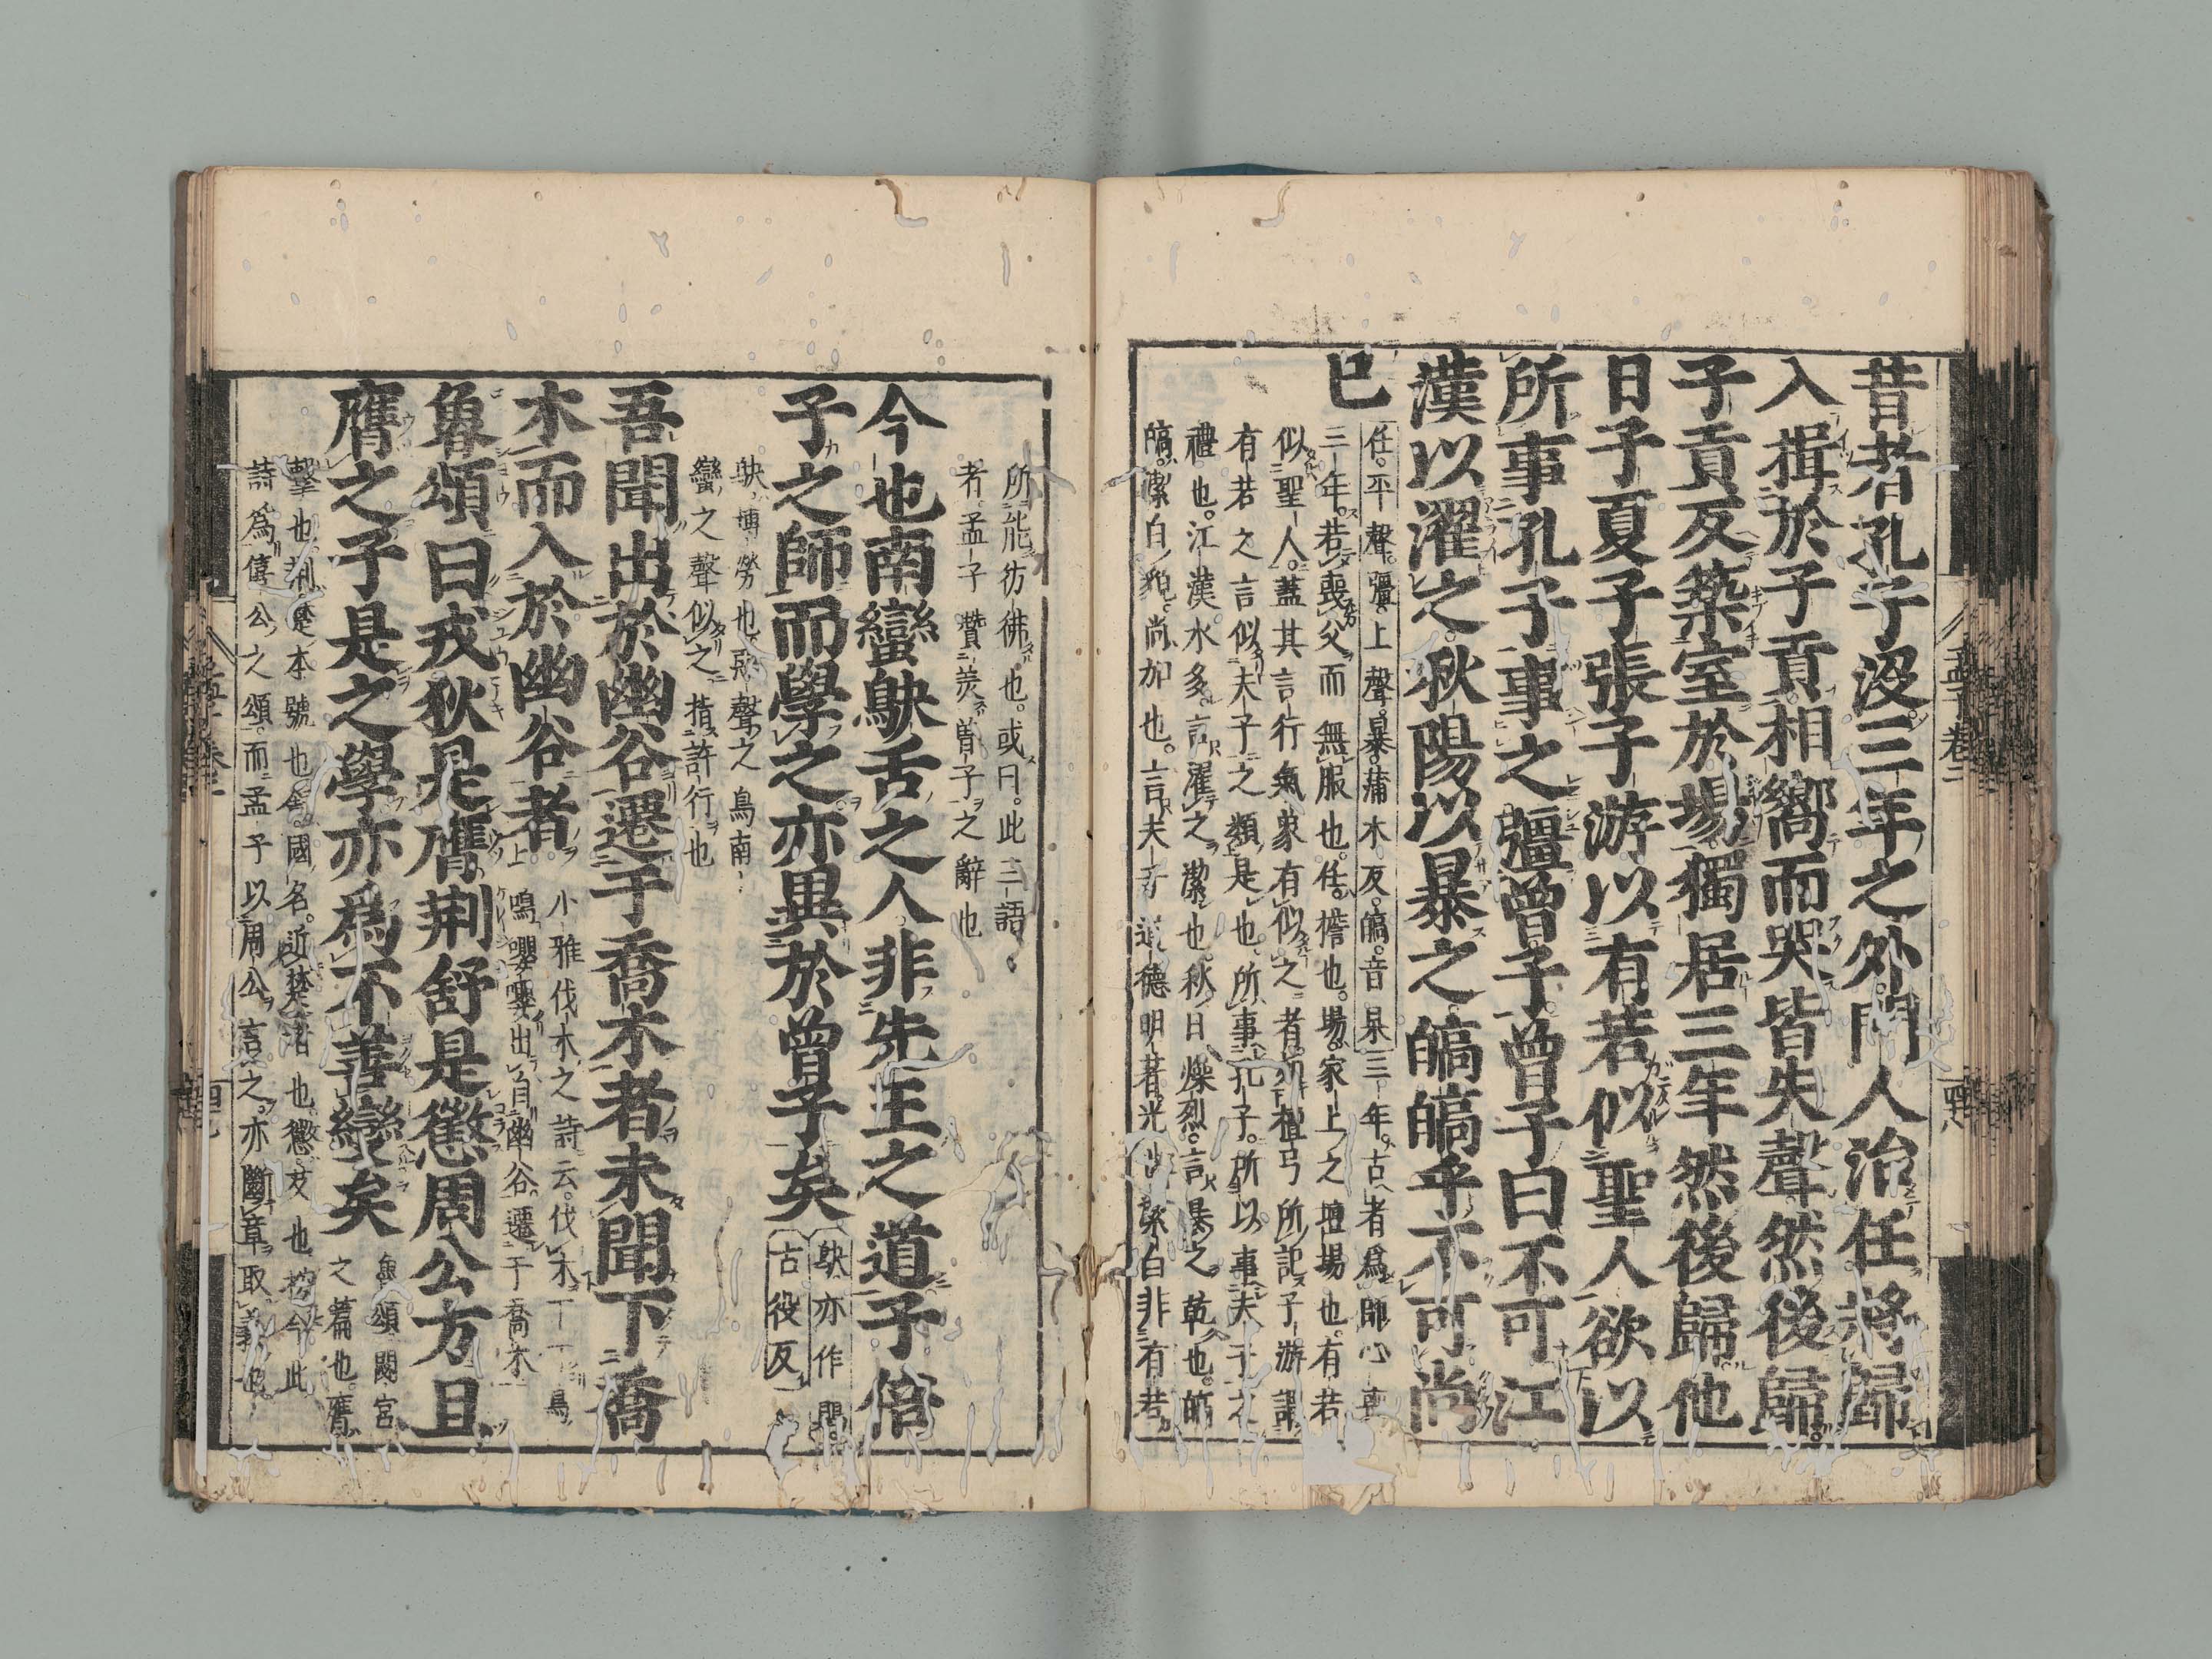 昔者孔子沒三年之外門人治任將歸
入揖於子貢相嚮而哭皆失聲然後歸
子貢反築室於場獨居三年然後歸他
日子夏子張子游以有若似聖人欲以
所事孔子事之彊曾子曾子曰不可江
漢以濯之秋陽以暴之皜皜乎不可尚
已
任平聲彊上聲暴蒲木反皜音杲三年古者爲師心喪
三年若喪父而無服也任擔也場冢上之壇場也有若
似聖人蓋其言行氣象有似之者如檀弓所記子游謂
有若之言似夫子之類是也所事孔子所以事夫子之
禮也江漢水多言濯之潔也秋日燥烈言暴之乾也皜
皜潔白貌尚加也言夫子道德明著光輝潔白非有若
所能彷彿也或曰此三語
者孟子贊美曾子之辭也
今也南蠻鴃舌之人非先王之道子倍
子之師而學之亦異於曾子矣
鴃亦作鶪
古役反
鴃博勞也惡聲之鳥南
蠻之聲似之指許行也
吾聞出於幽谷遷于喬木者未聞下喬
木而入於幽谷者
小雅伐木之詩云伐木丁丁鳥
鳴嚶嚶出自幽谷遷于喬木
魯頌曰戎狄是膺荆舒是懲周公方且
膺之子是之學亦爲不善變矣
魯頌閟宮
之篇也膺
擊也荆楚本號也舒國名近楚者也懲艾也按今此
詩爲僖公之頌而孟子以周公言之亦斷章取義也
孟子卷三